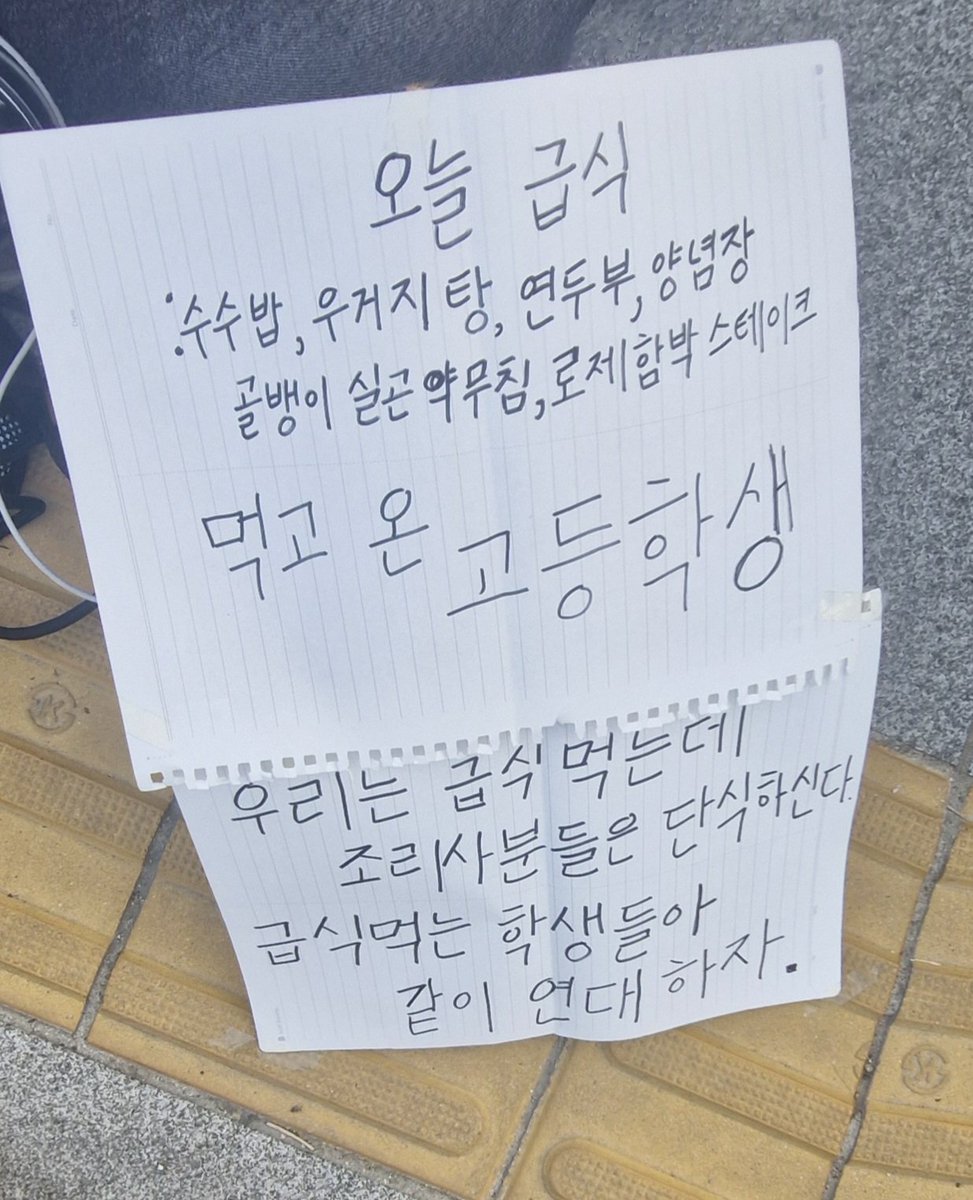 오늘 급식
: 수수밥, 우거지탕, 연두부, 양념장
골뱅이 실곤약무침, 로제함박스테이크
먹고 온 고등학생
우리는 급식먹는데
조리사분들은 단식하신다.
급식먹는 학생들아
같이 연대하자.